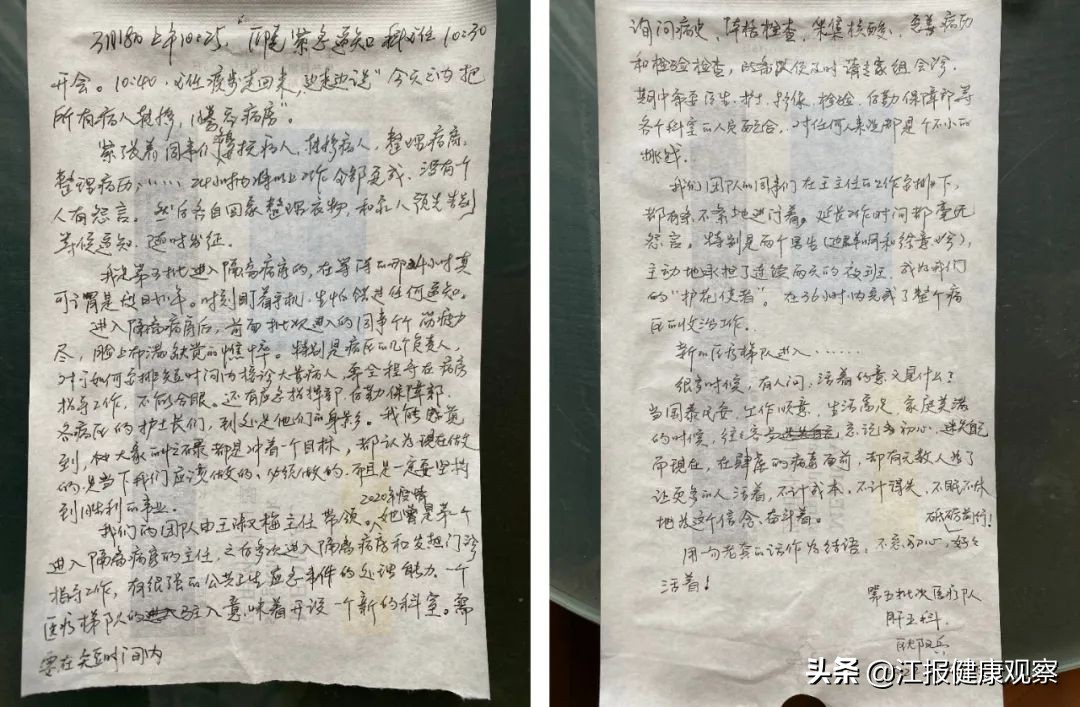 3月18日上午10:25，医院紧急通知科主任10:30
开会。10:40，主任疾步走回来，边走边说"今天之内把
所有病人转移，腾空病房"。
紧张着同事们接病人，转移病人，整理病房，
整理病历，……24小时内以上工作全部完成，没有个
人有怨言。然后各自回家整理衣物，和家人预先告别
等候通知，随时出征。
我是第五批进入隔离病房的，在等待的那24小时真
可谓是度日如年。时刻盯着手机，生怕错过任何通知。
进入隔离病房后，前面批次进入的同事个个筋疲力
尽，脸上布满缺觉的憔悴。特别是病区的几个负责人，
对于如何安排短时间内接诊大量病人，要全程守在病房
指导工作，不能合眼。还有应急指挥部，后勤保障部，
各病区的护士长们，到处是他们的身影。我能感觉
到，大家的忙碌都是冲着一个目标，都认为现在做
的是当下我们应该做的，必须做的，而且是一定要坚持
到胜利的事业。
2020年疫情
我们的团队由王淑梅主任带领。她曾是第一个
进入隔离病房的主任，之后多次进入隔离病房和发热门诊
指导工作，有很强的公共卫生应急事件的处理能力。一个
医疗梯队的进入意味着开设一个新的科室。需
要在短时间内
询问病史、体格检查，采集核酸，完善病历
和检验检查，及时请专家组会诊。
期中牵至医生、护士、影像、检验、后勤保障部等
各个科室的人员配合，对任何人来说都是个不小的
挑战。
我们团队的同事们在王主任的工作安排下，
都有条不紊地进行着。延长工作时间都毫无
怨言。特别是两个男生
主动地承担了连续两天的夜班，成为我们
的"护花使者"。在36小时内完成了整个病
区的收治工作。
新的医疗梯队进入……
很多时候，有人问，活着的意义是什么？
当国泰民安，工作顺意，生活富足，家庭美满
的时候，往往容易忘记初心，
而现在，在肆虐的病毒面前，却有无数人为了
让更多的人活着，不计成本，不计得失，不眠不休
地为这个信念奋斗着。
砥砺前行！
用一句老套的话作为结语，不忘初心，好好
活着！
第五批次医疗队
肝五科
头条@江报健康观察